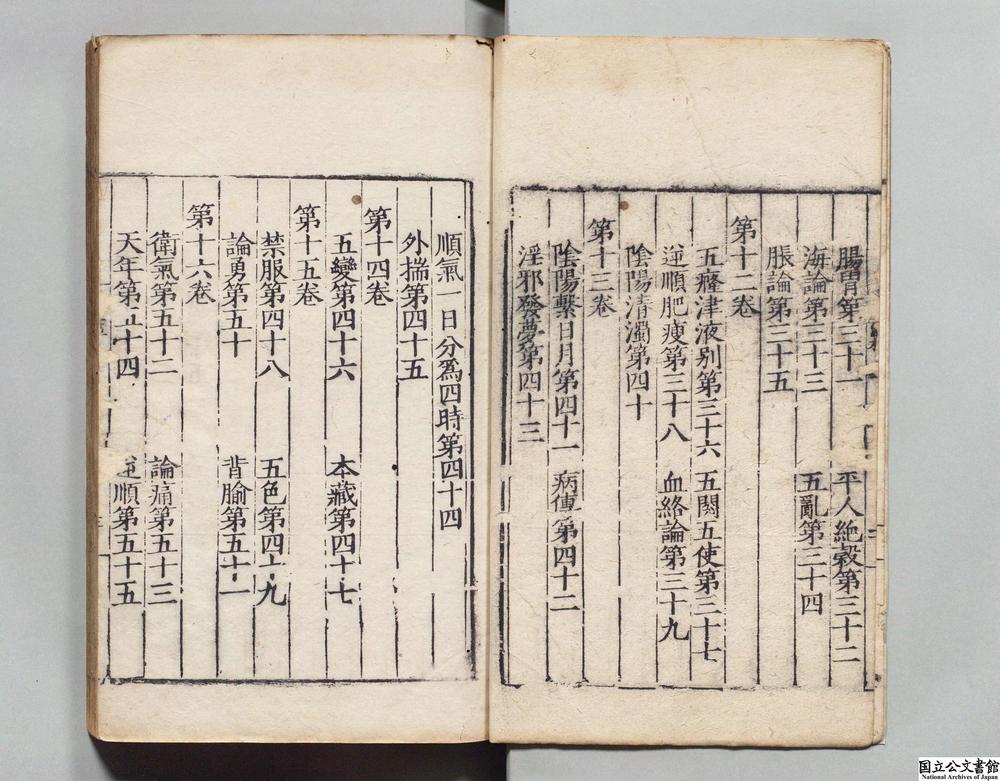 腸胃第三十一　平人絶穀第三十二
海論第三十三　五亂第三十四
脹論第三十五
第十二卷
五癃津液别第三十六　五閱五使第三十七
逆順肥瘦第三十八　血絡論第三十九
陰陽清濁第四十
第十三卷
陰陽繫日月第四十一　病傳第四十二
淫邪發夢第四十三
順氣一日分爲四時第四十四
外揣第四十五
第十四卷
五變第四十六　本藏第四十七
第十五卷
禁服第四十八　五色第四十九
論勇第五十　背腧第五十一
第十六卷
衛氣第五十二　論痛第五十三
天年第五十四　逆順第五十五
国立公文書館
National Archives of Japan